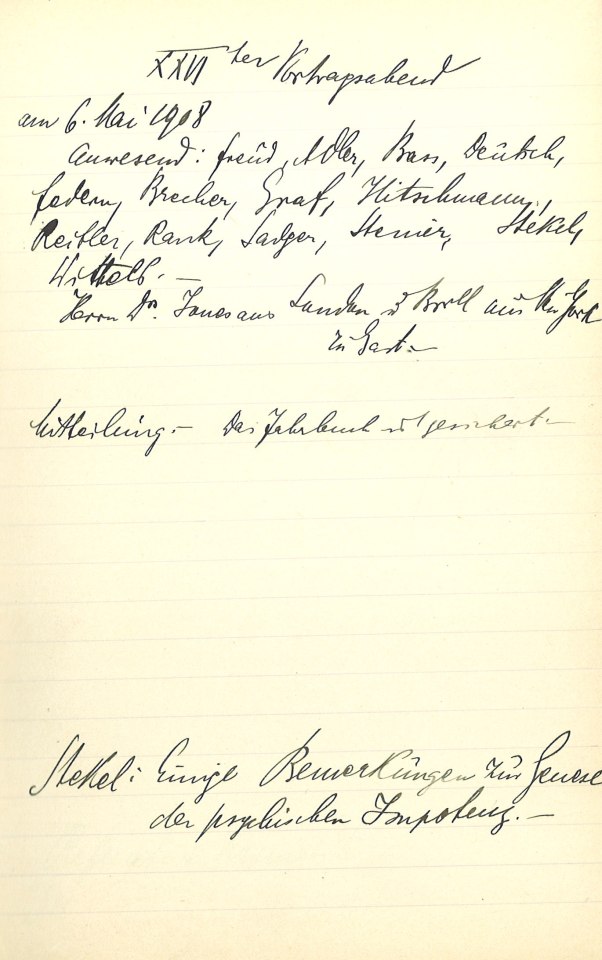 XXVI ter Vortragsabend
am 6. Mai 1908
Anwesend: Freud, Adler, Bass, Deutsch,
Federn, Brecher, Graf, Hitschmann,
Reitler, Rank, Sadger, Steiner, Stekel,
Wittels. —
Herrn Dr. Jones aus London u Brill aus New York
zu Gast. —
Mitteilung. — Das Jahrbuch ist gesichert. —
Stekel: Einige Bemerkungen zur Genese
der psychischen Impotenz. —